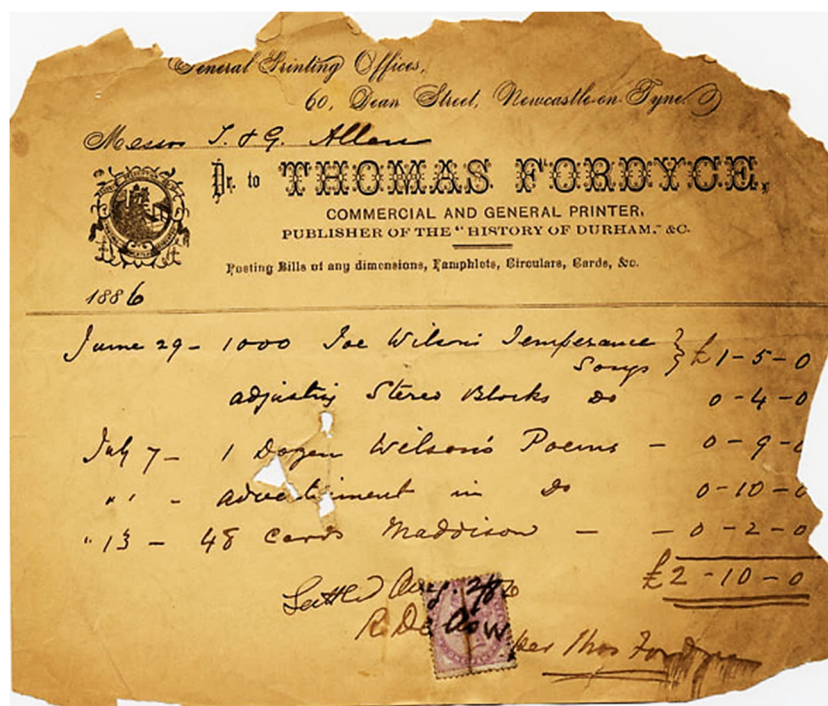 General Printing Offices,
60, Dean Street, Newcastle-on-Tyne.
Messrs T. & G. Allan
Dr. to THOMAS FORDYCE,
COMMERCIAL AND GENERAL PRINTER,
PUBLISHER OF THE "HISTORY OF DURHAM," &C.
Posting Bills of any dimensions, Pamphlets, Circulars, Cards, &c.
1886
June 29 - 1000 Joe Wilson's Temperance Songs } £1-5-0
adjusting Stereo Blocks Do 0-4-0
July 7 - 1 Dozen Wilson's Poems - 0-9-0
" " - advertisment in Do 0-10-0
" 13 - 48 Cards Maddison - - 0-2-0
£2-10-0
Settled Aug. 2/86
per Thos Fordyce